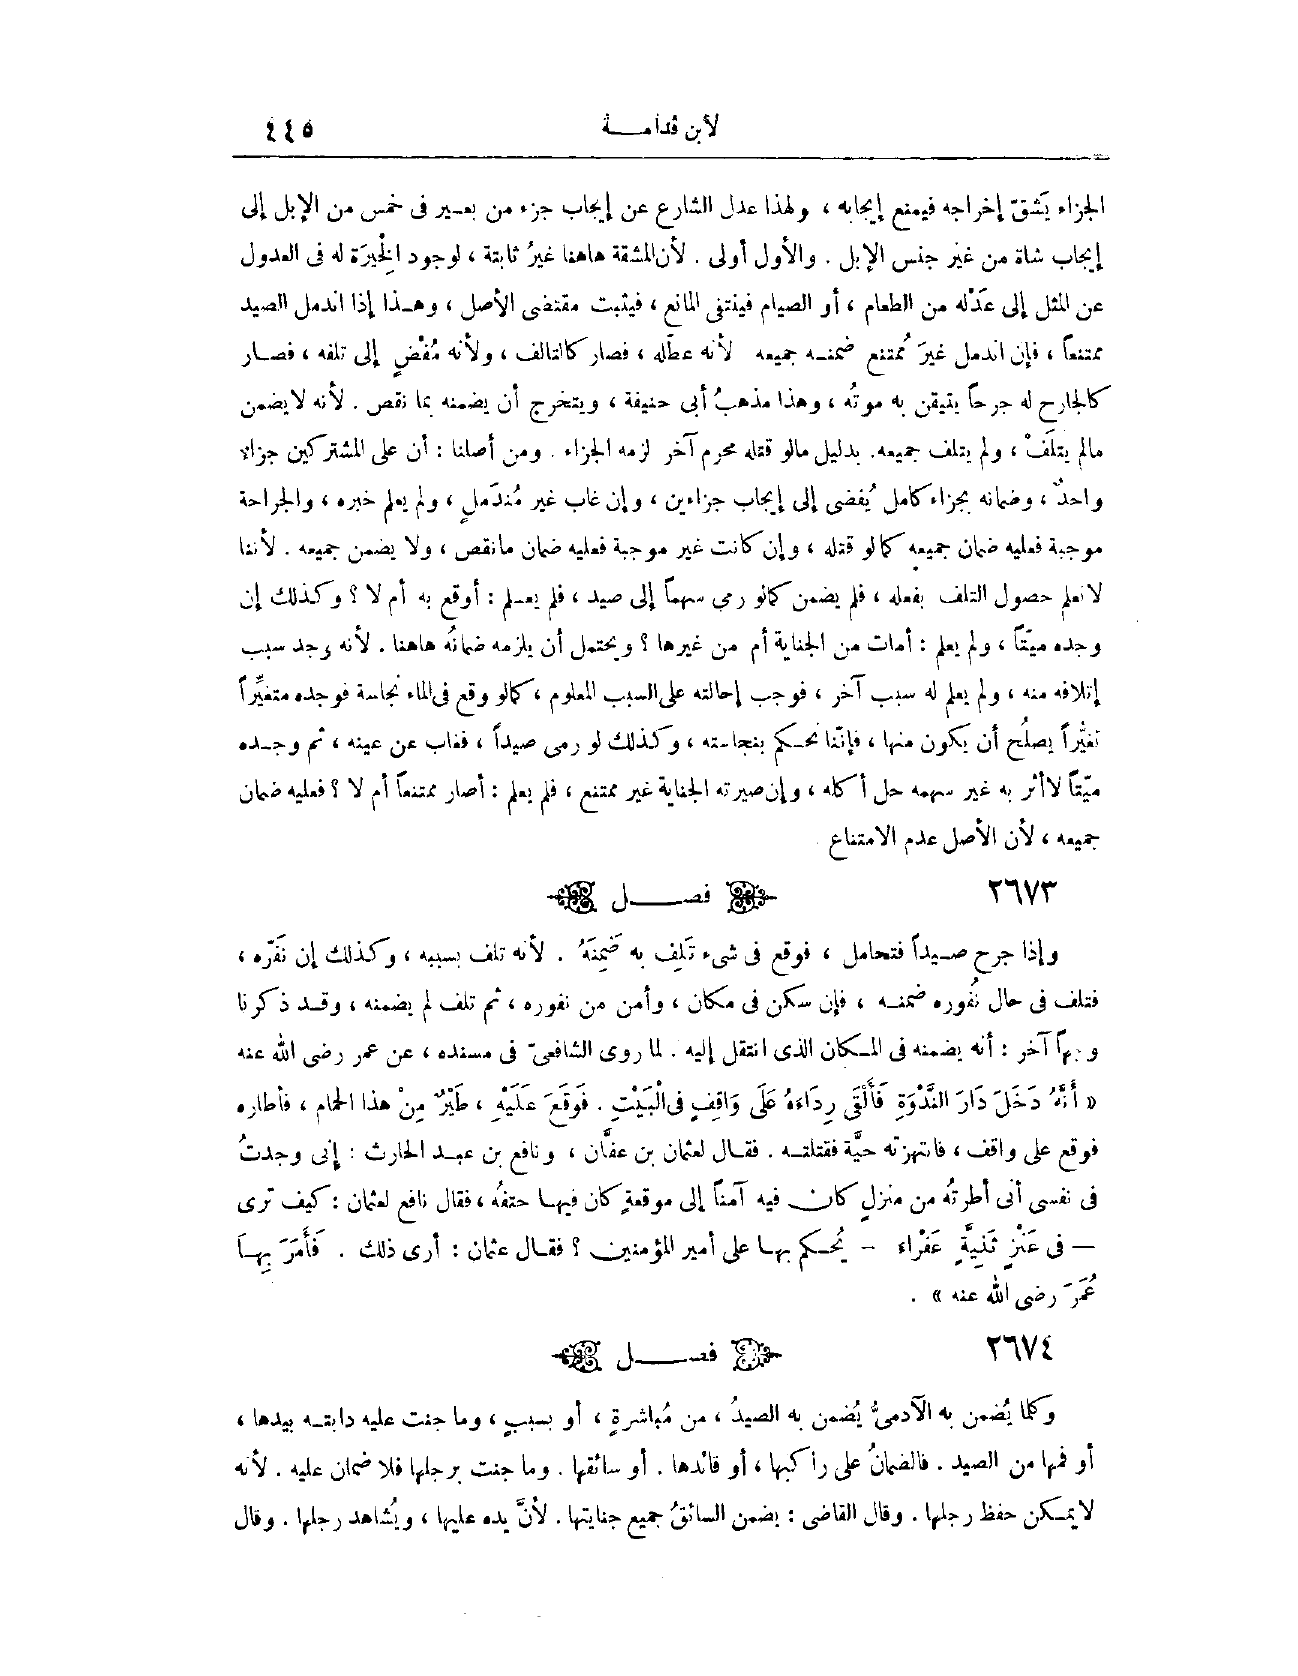 لابن قدامـــة ٤٤٥
الجزاء يَشقّ إخراجه فيمنع إيجابه ، ولهذا عدل الشارع عن إيجاب جزء من بعــير فى خمس من الإبل إلى
إيجاب شاة من غير جنس الإبل . والأول أولى . لأن المشقة هاهنا غيرُ ثابتة ، لوجود الخِيرَة له فى العدول
عن المثل إلى عَدْله من الطعام ، أو الصيام فينتفى المانع ، فيثبت مقتضى الأصل ، وهــذا إذا اندمل الصيد
ممتنعاً ، فإن اندمل غيرَ مُمتنع ضمنــه جميعه لأنه عطّله ، فصار كالتالف ، ولأنه مُفْضٍ إلى تلفه ، فصــار
كالجارح له جرحاً يتيقن به موتُه ، وهذا مذهبُ أبى حنيفة ، ويتخرج أن يضمنه بما نقص . لأنه لا يضمن
مالم يتلَفْ ، ولم يتلف جميعه. بدليل مالو قتله محرم آخر لزمه الجزاء . ومن أصلنا : أن على المشتركين جزاء
واحدٌ ، وضمانه بجزاء كامل يُفضى إلى إيجاب جزاءين ، وإن غاب غير مُندَملٍ ، ولم يعلم خبره ، والجراحة
موجبة فعليه ضمان جميعه كما لو قتله ، وإن كانت غير موجبة فعليه ضمان مانقص ، ولا يضمن جميعه . لأننا
لا نعلم حصول التلف بفعله ، فلم يضمن كمالو رمى سهماً إلى صيد ، فلم يعــلم : أوقع به أم لا ؟ وكذلك إن
وجده ميّتاً ، ولم يعلم : أمات من الجناية أم من غيرها ؟ ويحتمل أن يلزمه ضمانُه هاهنا . لأنه وجد سبب
إتلافه منه ، ولم يعلم له سبب آخر ، فوجب إحالته على السبب المعلوم ، كمالو وقع فى الماء نجاسة فوجده متغيِّراً
تغيُّراً يصلُح أن يكون منها ، فإنّنا نحــكم بنجاسته ، وكذلك لو رمى صيداً ، فغاب عن عينه ، ثم وجــده
ميّتاً لا أثر به غير سهمه حل أكله ، وإن صيرته الجناية غير ممتنع ، فلم يعلم : أصار ممتنعاً أم لا ؟ فعليه ضمان
جميعه ، لأن الأصل عدم الامتناع
٢٦٧٣ فصــــل
وإذا جرح صــيداً فتحامل ، فوقع فى شىء تَلِف به ضَمِنَهُ . لأنه تلف بسببه ، وكذلك إن نَفّره ،
فتلف فى حال نُفُوره ضمنــه ، فإن سكن فى مكان ، وأمن من نفوره ، ثم تلف لم يضمنه ، وقــد ذكرنا
وجهاً آخر : أنه يضمنه فى المــكان الذى انتقل إليه . لما روى الشافعىّ فى مسنده ، عن عمر رضى الله عنه
« أَنَّهُ دَخَلَ دَارَ النَّدْوَةِ فَأَلْقَى رِدَاءَهُ عَلَى وَاقِفٍ فى الْبَيْتِ . فَوَقَعَ عَلَيْهِ ، طَيْرٌ مِنْ هذا الحمام ، فأطاره
فوقع على واقف ، فانتهزته حيَّة فقتلتــه . فقــال لعثمان بن عفَّان ، ونافع بن عبــد الحارث : إنى وجدتُ
فى نفسى أنى أطرتُه من منزلٍ كان فيه آمناً إلى موقعةٍ كان فيهــا حتفُه ، فقال نافع لعثمان : كيف ترى
— فى عَنْزٍ ثَنِيَّةٍ عَفْراء - يُحــكم بهــا على أمير المؤمنين ؟ فقــال عثمان : أرى ذلك . فَأَمَرَ بِهــاَ
عُمَرَ رضى الله عنه » .
٢٦٧٤ فصــــل
وكلما يُضمن به الآدمىُّ يُضمن به الصيدُ ، من مُباشرةٍ ، أو بسببٍ ، وما جنت عليه دابتــه بيدها ،
أو فمها من الصيد . فالضمانُ على راكبها ، أو قائدها . أو سائقها . وما جنت برجلها فلا ضمان عليه . لأنه
لا يمــكن حفظ رجلها . وقال القاضى : يضمن السائقُ جميع جنايتها . لأنَّ يده عليها ، ويُشاهد رجلها . وقال